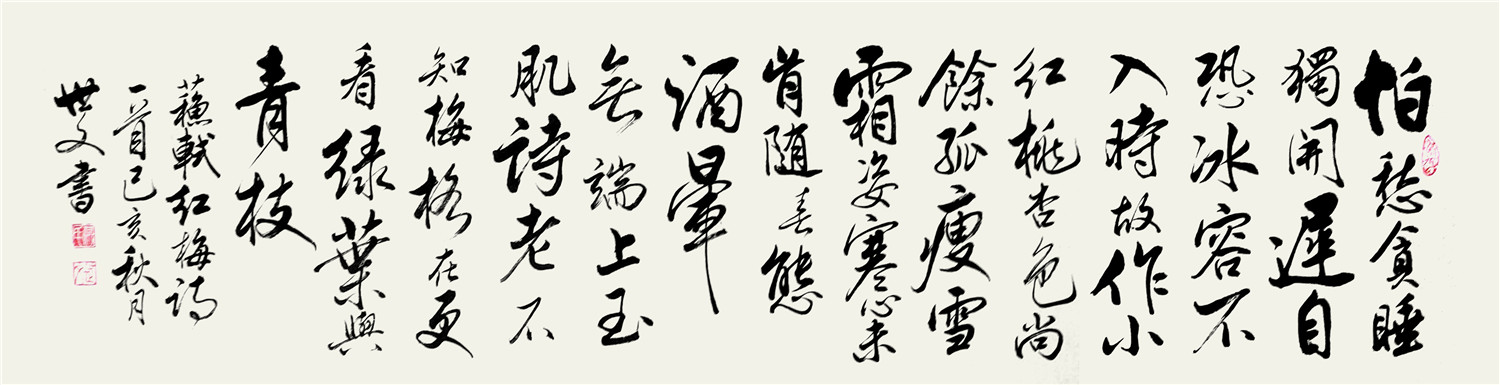 怕愁貪睡
獨開遲自
恐冰容不
入時故作小
红桃杏色尚
餘孤瘦雪
霜姿寒心未
肯随春態
酒暈
無端上玉
肌詩老不
知梅格在更
看緑葉與
青枝
蘓軾红梅詩
一首己亥秋月
世文書